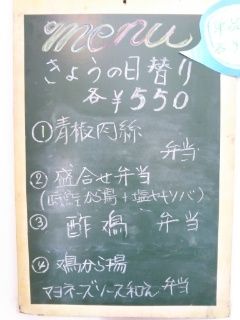 menu
きょうの日替り
各¥550
①青椒肉絲
弁当
②盛合せ弁当
から鶏+塩ヤキソバ)
③ 酢鶏 弁当
④ 鶏から揚
マヨネーズソース和え弁当